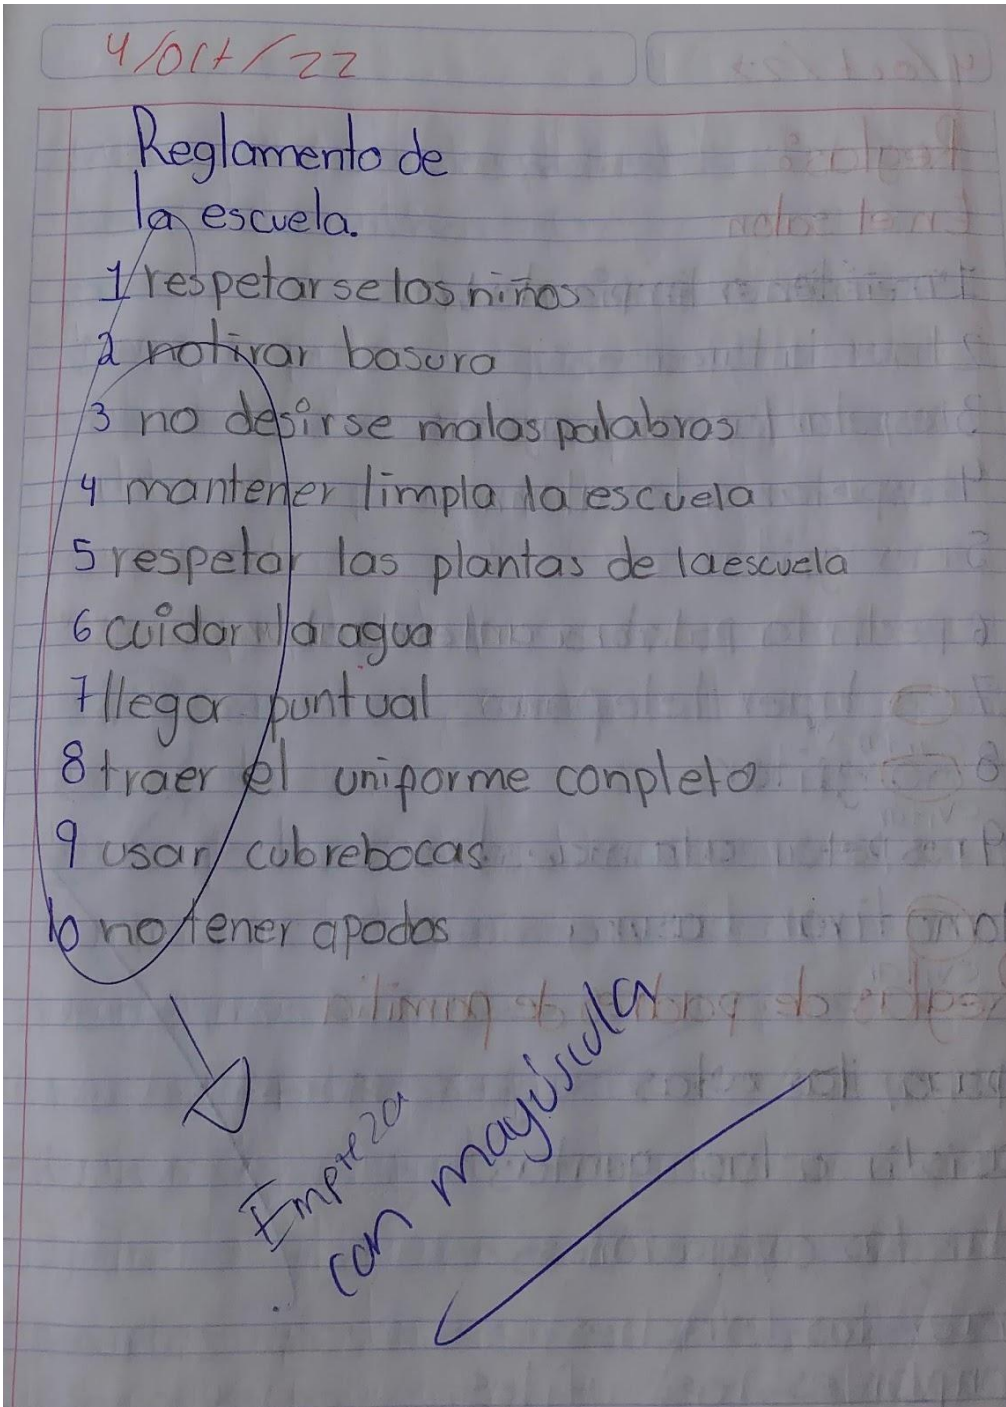 4/Oct/22
Reglamento de
la escuela.
1 respetarse los niños
2 no tirar basura
3 no desirse malas palabras
4 mantener limpla la escuela
5 respetar las plantas de la escuela
6 cuidar la agua
7 llegar puntual
8 traer el uniforme conpleto
9 usar cubrebocas
10 no tener apodos
Empieza
con mayúscula